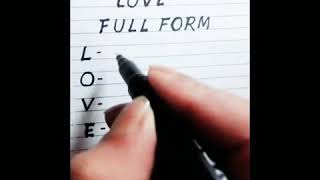 LOVE
FULL FORM
L -
O -
V -
E -